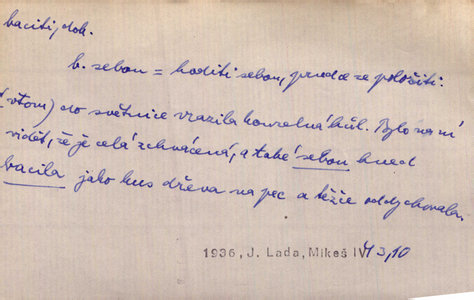 baciti, dok.
b. sebou = hoditi sebou, prudce se položiti.
(vtom) do světnice vrazila kouzelná hůl. Bylo na ní
vidět, že je celá zchvácená, a také sebou hned
bacila jako kus dřeva na pec a těžce oddychovala.
1936, J. Lada, Mikeš IV 3,10